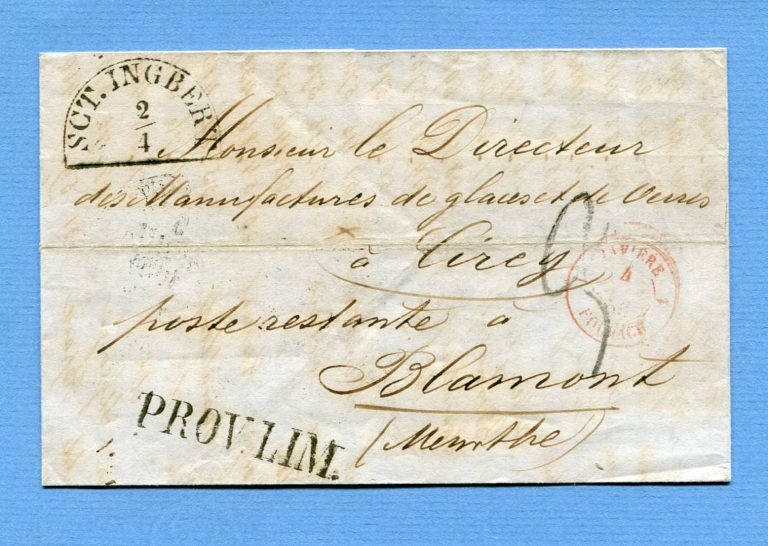 SCT. INGBERT
2
4
Monsieur le Directeur
des Manufactures de glaces et de Verres
à Cirey
BAVIERE
4
FORBACH
poste restante à
Blamont
(Meurthe)
PROV. LIM.